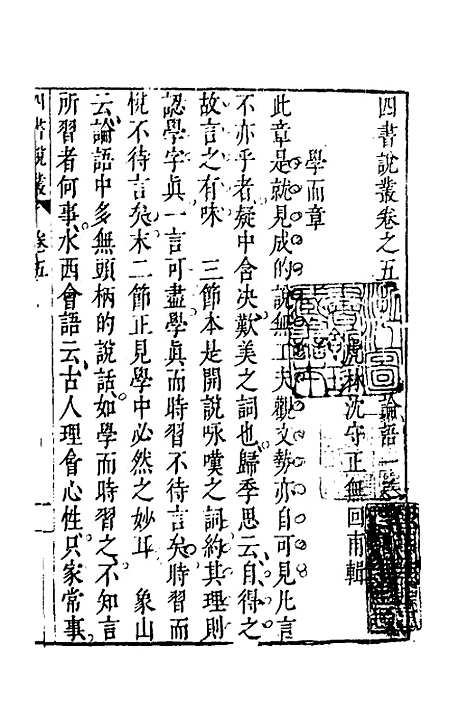 四書說叢卷之五
論語一
虎林沈守正無回甫輯
學而章
此章是就見成的說無工夫觀文勢亦自可見凡言
不亦乎者疑中含決歎美之詞也歸季思云自得之
故言之有味　三節本是開說咏嘆之詞約其理則
認學字眞一言可盡學眞而時習不待言矣時習而
悅不待言矣末二節正見學中必然之妙耳　象山
云論語中多無頭柄的說話如學而時習之不知言
所習者何事水西會語云古人理會心性只家常事
四書說叢　卷五　一